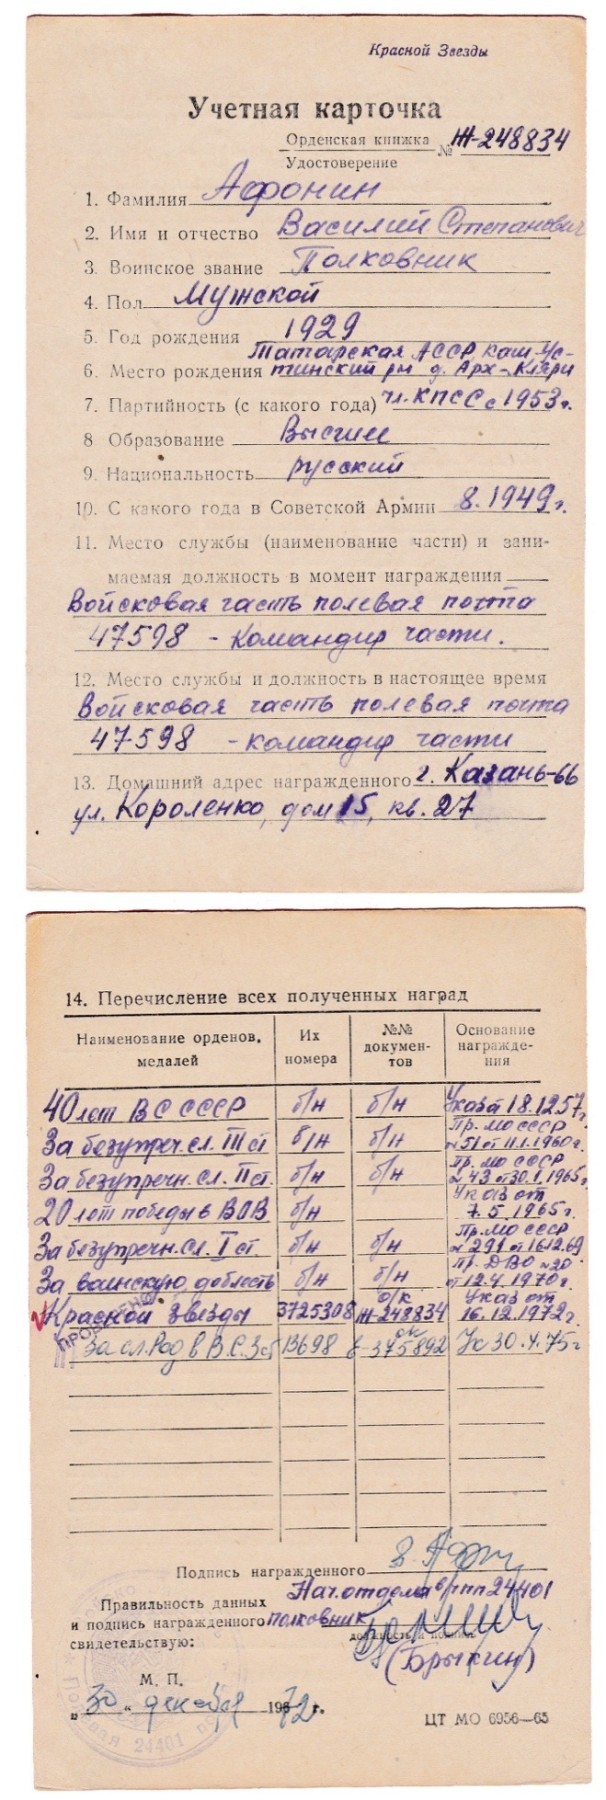 Красной Звезды
Учетная карточка
Орденская книжка № Ж-248834
Удостоверение
1. Фамилия Афонин
2. Имя и отчество Василий Степанович
3. Воинское звание Полковник
4. Пол Мужской
5. Год рождения 1929
Татарская АССР, Каш-Ус-
6. Место рождения тинский р-н д. Арх-Кляри
7. Партийность (с какого года) чл. КПСС с 1953 г.
8 Образование Высшее
9. Национальность русский
10. С какого года в Советской Армии 8.1949 г.
11. Место службы (наименование части) и зани-
маемая должность в момент награждения
Войсковая часть полевая почта
47598 - командир части.
12. Место службы и должность в настоящее время
Войсковая часть полевая почта
47598 - командир части
13. Домашний адрес награжденного г. Казань-66
ул. Короленко, дом 15, кв. 27
14. Перечисление всех полученных наград
Наименование орденов, медалей Их номера №№ документов Основание награждения
40 лет ВС СССР б/н б/н Указ от 18.12.57 г.
За безупреч. сл. III ст б/н б/н Пр. МО СССР № 51 от 11.1.1960 г.
За безупречн. сл. II ст. б/н б/н Пр. МО СССР № 43 от 30.1.1965 г.
20 лет победы в ВОВ б/н Указ от 7.5.1965 г.
За безупречн. сл. I ст. б/н б/н Пр. МО СССР № 291 от 16.12.69
За воинскую доблесть б/н б/н Пр. ДВО № 20 от 12.4.1970 г.
Красной звезды 3725308 о/к Ж-248834 Указ от 16.12.1972 г.
ПРОВЕРЕНО
За сл. Род в В.С. 3 ст 13698 ок 375892 Ук 30.4.75 г
Подпись награжденного
Нач. отдела в/ч пп 24401
Правильность данных
и подпись награжденного полковник
свидетельствую:
должность и подпись
(Брыкин)
М. П.
„30" декабря 1972 г.
Полевая 24401
ЦТ МО 6956—65